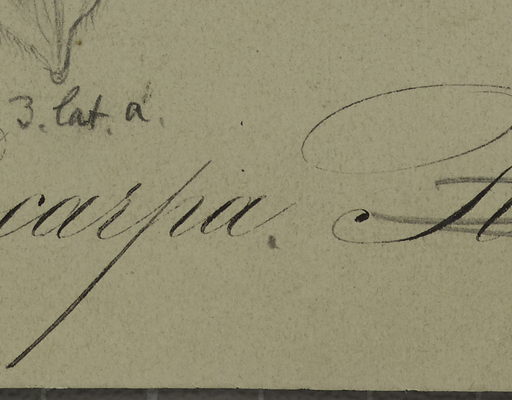 3. lat. a.
carpa.